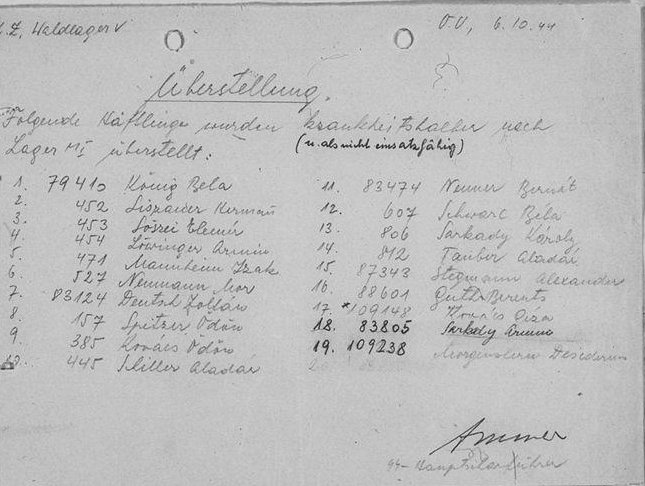 Z. Waldlager V
O.U, 6.10.44
Überstellung.
Folgende Häftlinge wurden krankheitshalber nach
(u. als nicht einsatzfähig)
Lager M I überstellt:
1. 79410 König Bela
2. 452 Liszauer Hermann
3. 453 Löszei Elemér
4. 454 Löwinger Armin
5. 471 Mannheim Izak
6. 527 Neumann Mor
7. 83124 Deutsch Zoltán
8. 157 Spitzer Ödön
9. 385 Kovács Ödön
10. 445 Stiller Aladár
11. 83474 Nemner Bernát
12. 607 Schwarc Béla
13. 806 Sarkady Károly
14. 812 Tauber Aladár
15. 87343 Stegmann Alexander
16. 88601 Guth Berents
17. *109148 Kovács Geza
18. 83805 Sarkady Armin
19. 109238 Morgenstern Desiderius
20
SS-Hauptscharführer